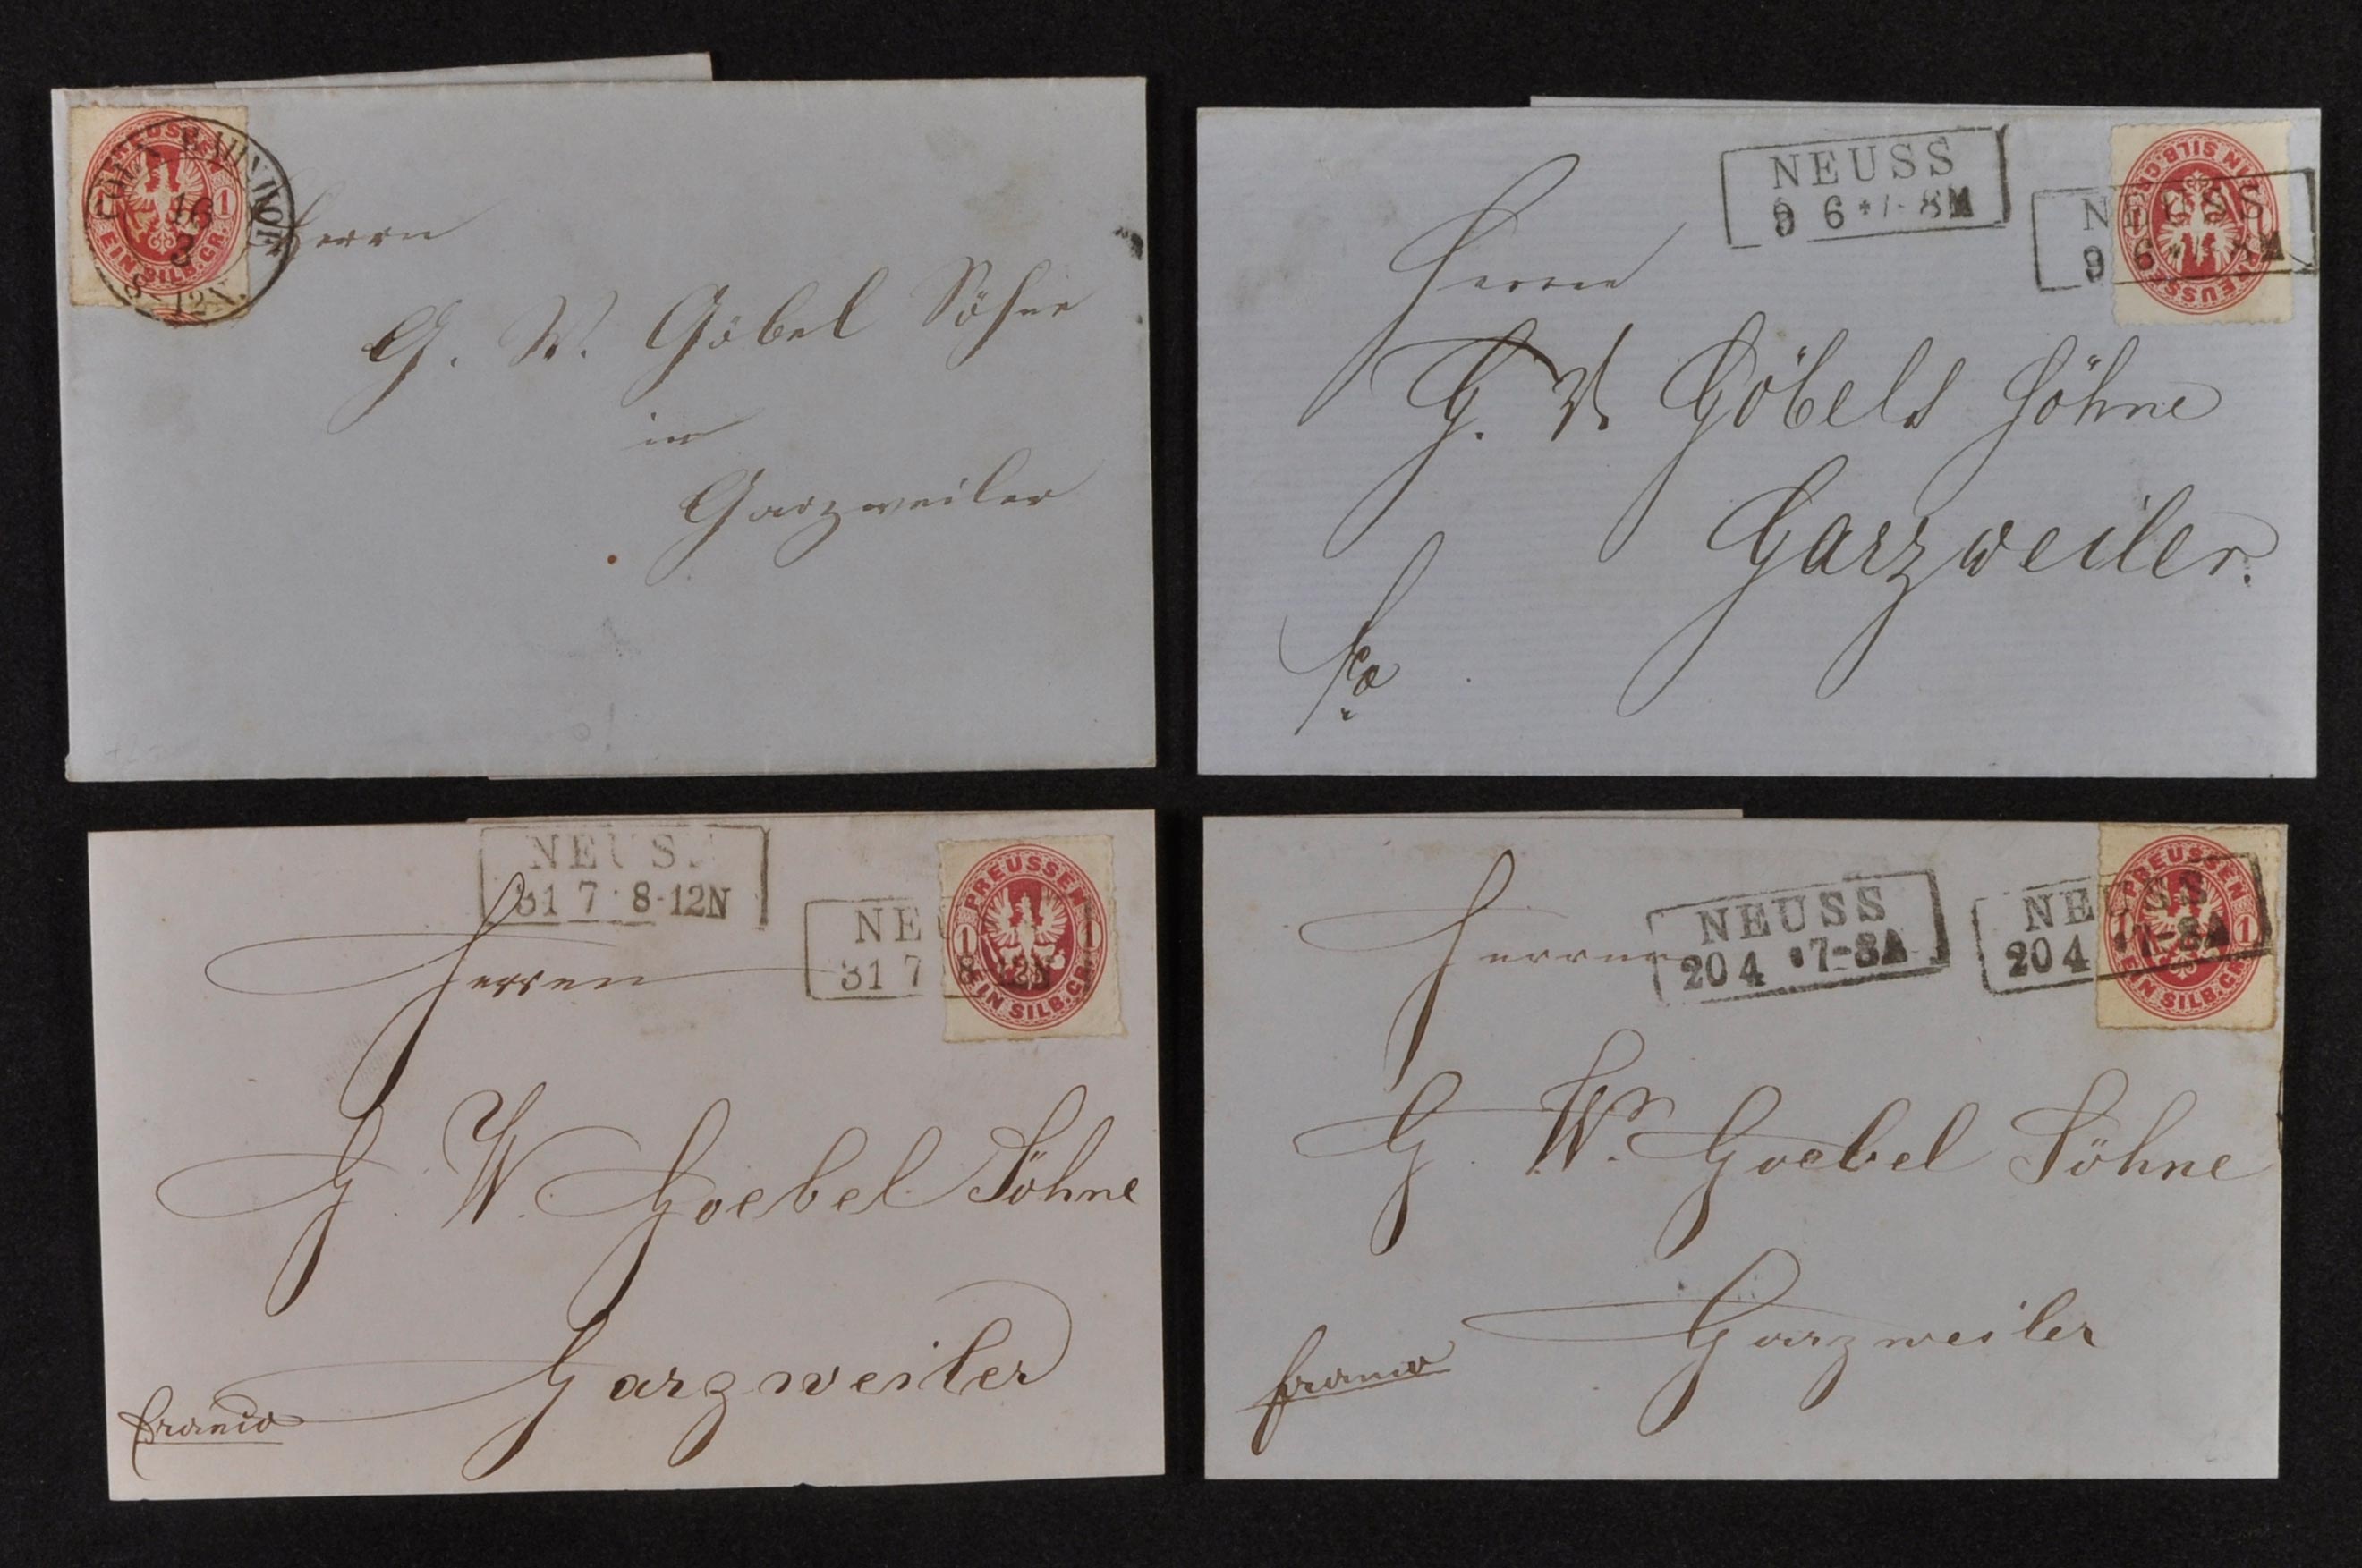 PREUSSEN
1
EIN SILB.GR.
CÖLN BAHNHOF
16
3
8-12N.
Herrn
G. W. Göbel Söhne
in
Garzweiler
NEUSS
9 6 7-8M
PREUSSEN
EIN SILB.GR.
NEUSS
9 6
Herrn
G. W. Göbels Söhne
Garzweiler.
fco
NEUSS
31 7 8-12N
PREUSSEN
1 1
EIN SILB.GR.
NEUSS
31 7 8-12N
Herren
G. W. Goebel Söhne
Garzweiler
franco
NEUSS
20 4 7-8A
PREUSSEN
1
EIN SILB.GR.
NEUSS
20 4 7-8A
Herren
G. Wm. Goebel Söhne
Garzweiler
franco